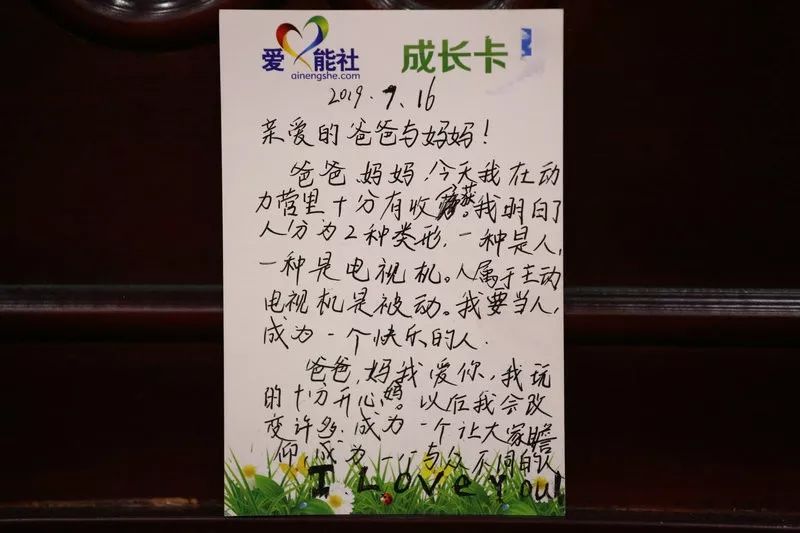 爱能社
ainengshe.com
成长卡
2019.7.16
亲爱的爸爸与妈妈!
爸爸 妈妈,今天我在动
力营里十分有收获。我明白了
人分为2种类形,一种是人,
一种是电视机。人属于主动
电视机是被动。我要当人,
成为一个快乐的人.
爸爸,妈我爱你,我玩
的十分开心妈。以后我会改
变许多,成为一个让大家瞻
仰,成为一个与众不同的人
I Love You!